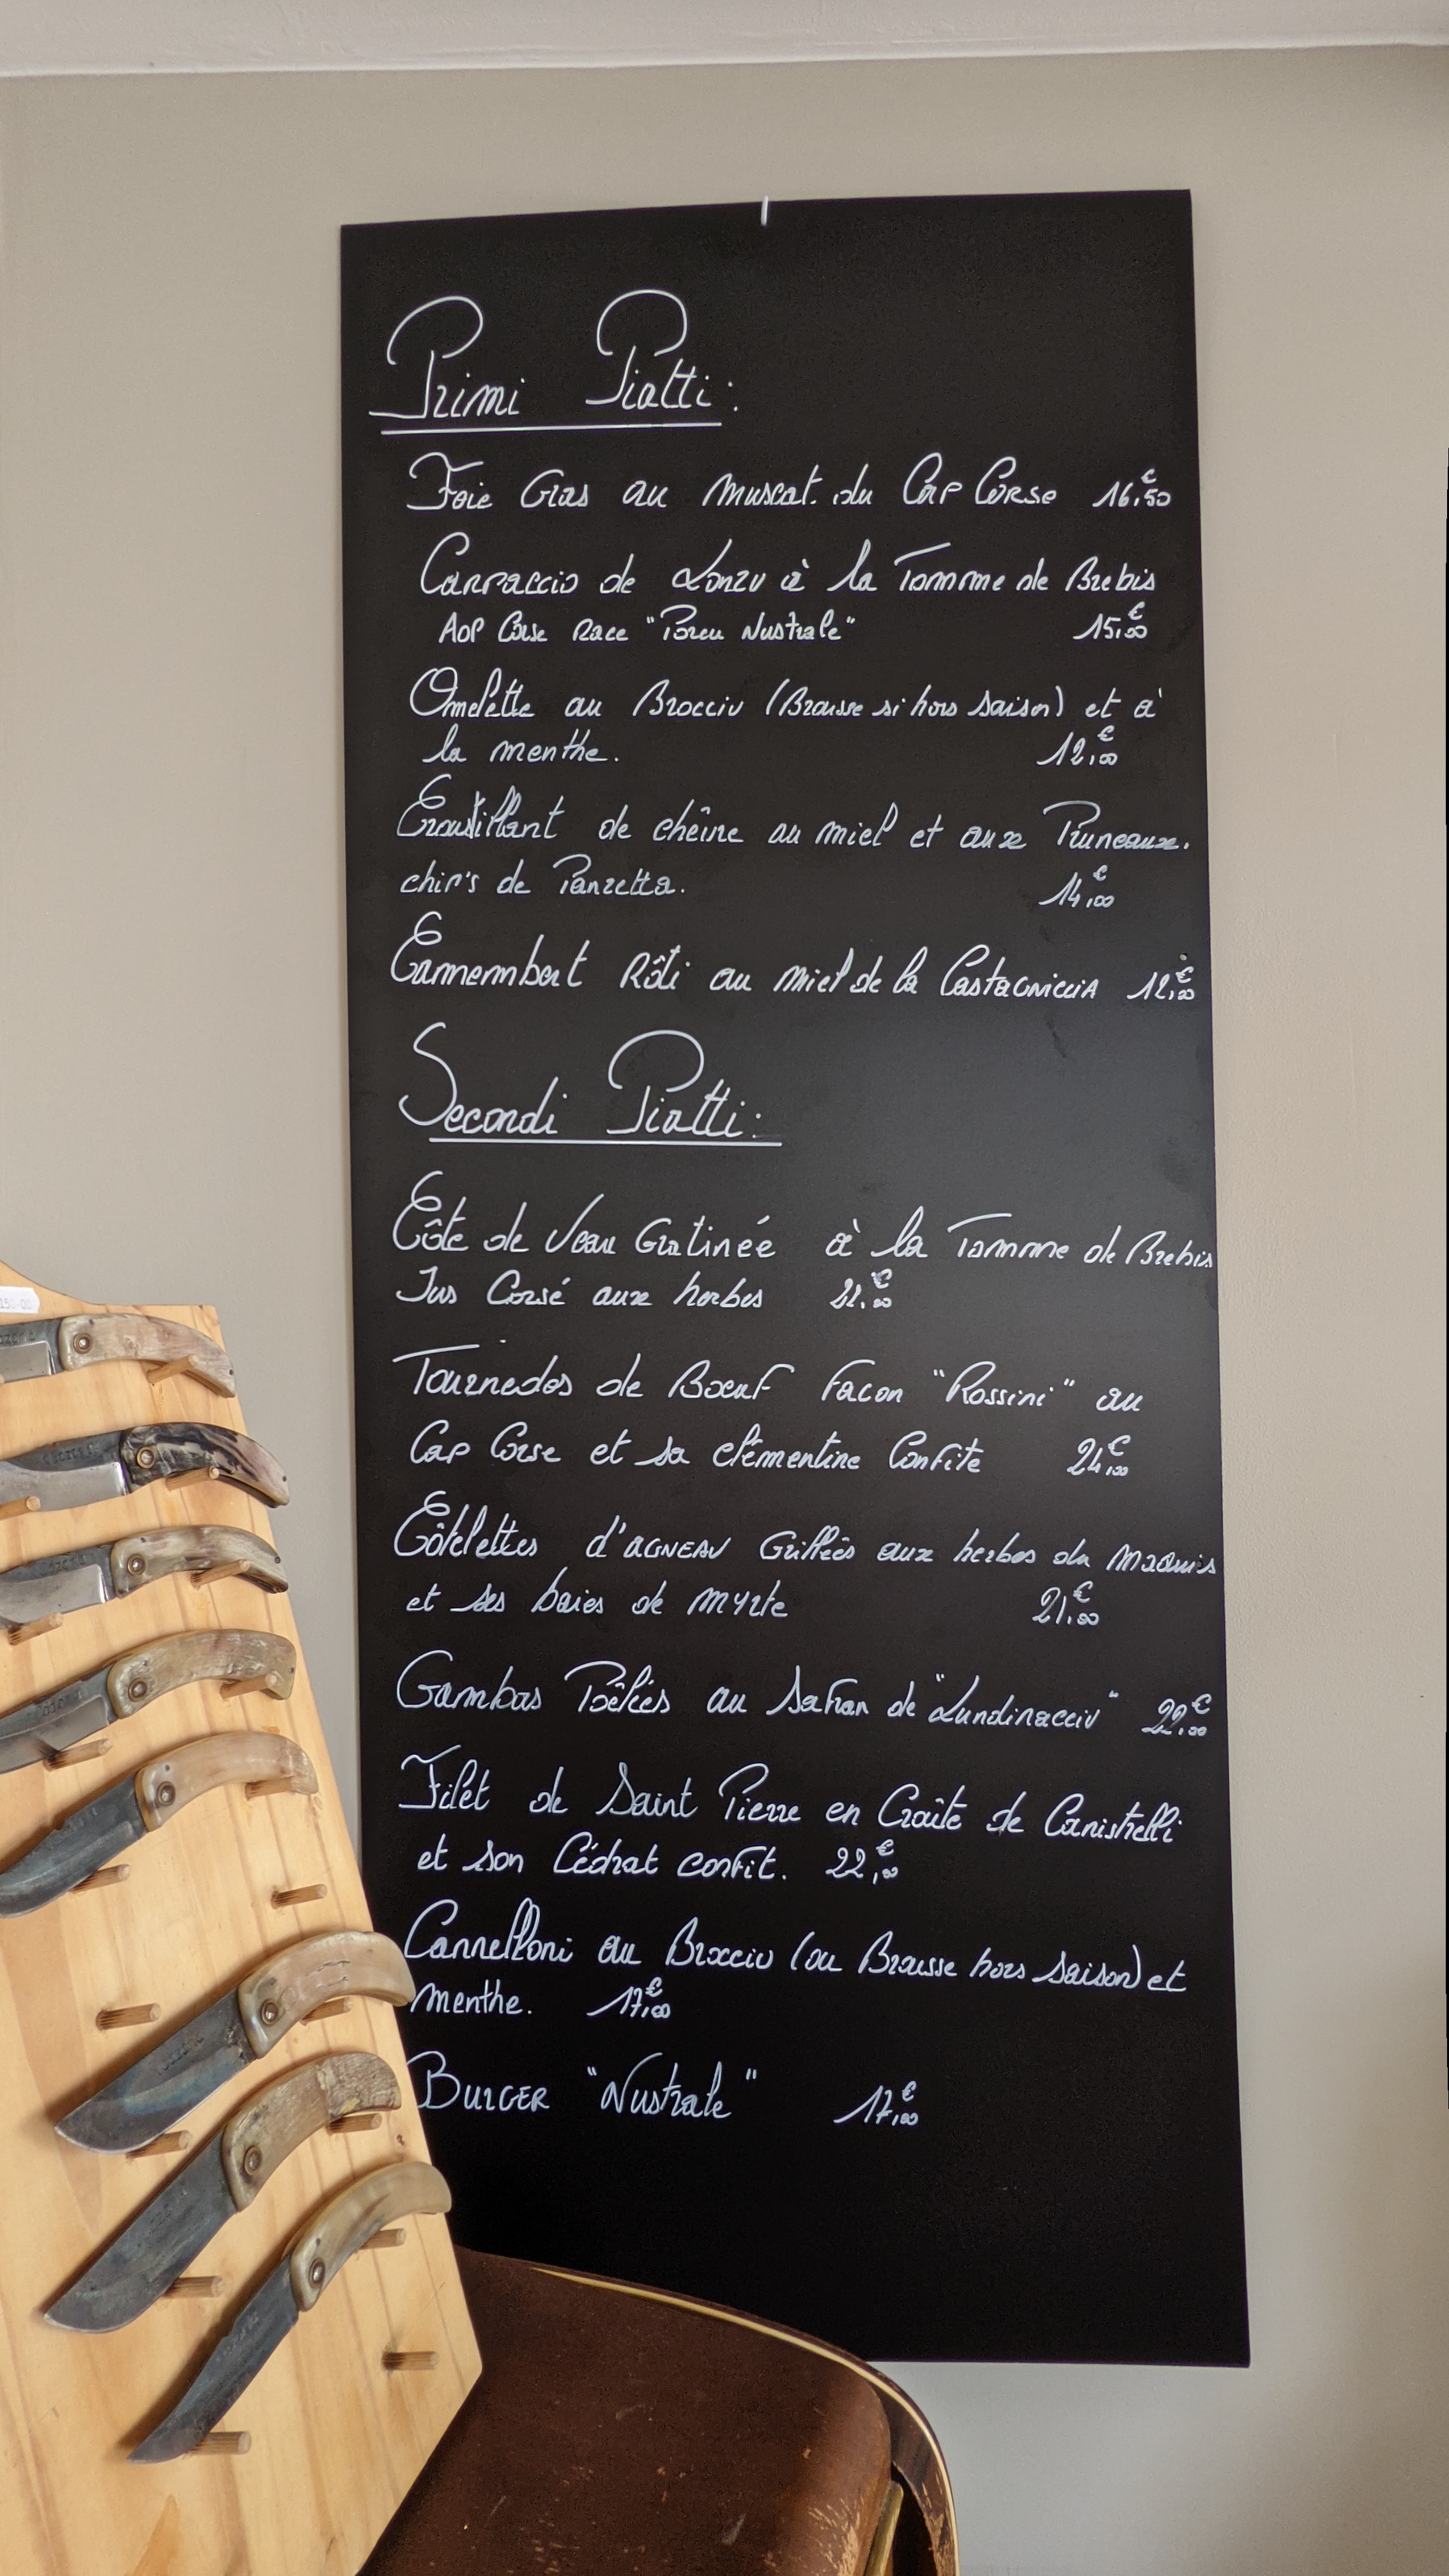 Primi Piatti:
Foie Gras au Muscat. du Cap Corse 16,50€
Carpaccio de Lonzu à la Tomme de Brebis
AOP Corse Race "Porcu Nustrale" 15,00€
Omelette au Brocciu (Brousse si hors saison) et à
la menthe. 12,00€
Croustillant de chèvre au miel et aux Pruneaux.
chip's de Panzetta. 14,00€
Camembert Rôti au miel de la Castagniccia 12,00€
Secondi Piatti:
Côte de Veau Gratinée à la Tomme de Brebis
Jus Corsé aux herbes 22,00€
Tournedos de Boeuf Facon "Rossini" au
Cap Corse et sa clémentine Confite 24,00€
Côtelettes d'agneau Grillées aux herbes du maquis
et ses baies de myrte 21,00€
Gambas Poêlées au Safran de "Lundinacciu" 22,00€
Filet de Saint Pierre en Croûte de Canistrelli
et son Cédrat confit. 22,00€
Cannelloni au Brocciu (ou Brousse hors saison) et
menthe. 17,00€
Burger "Nustrale" 17,00€